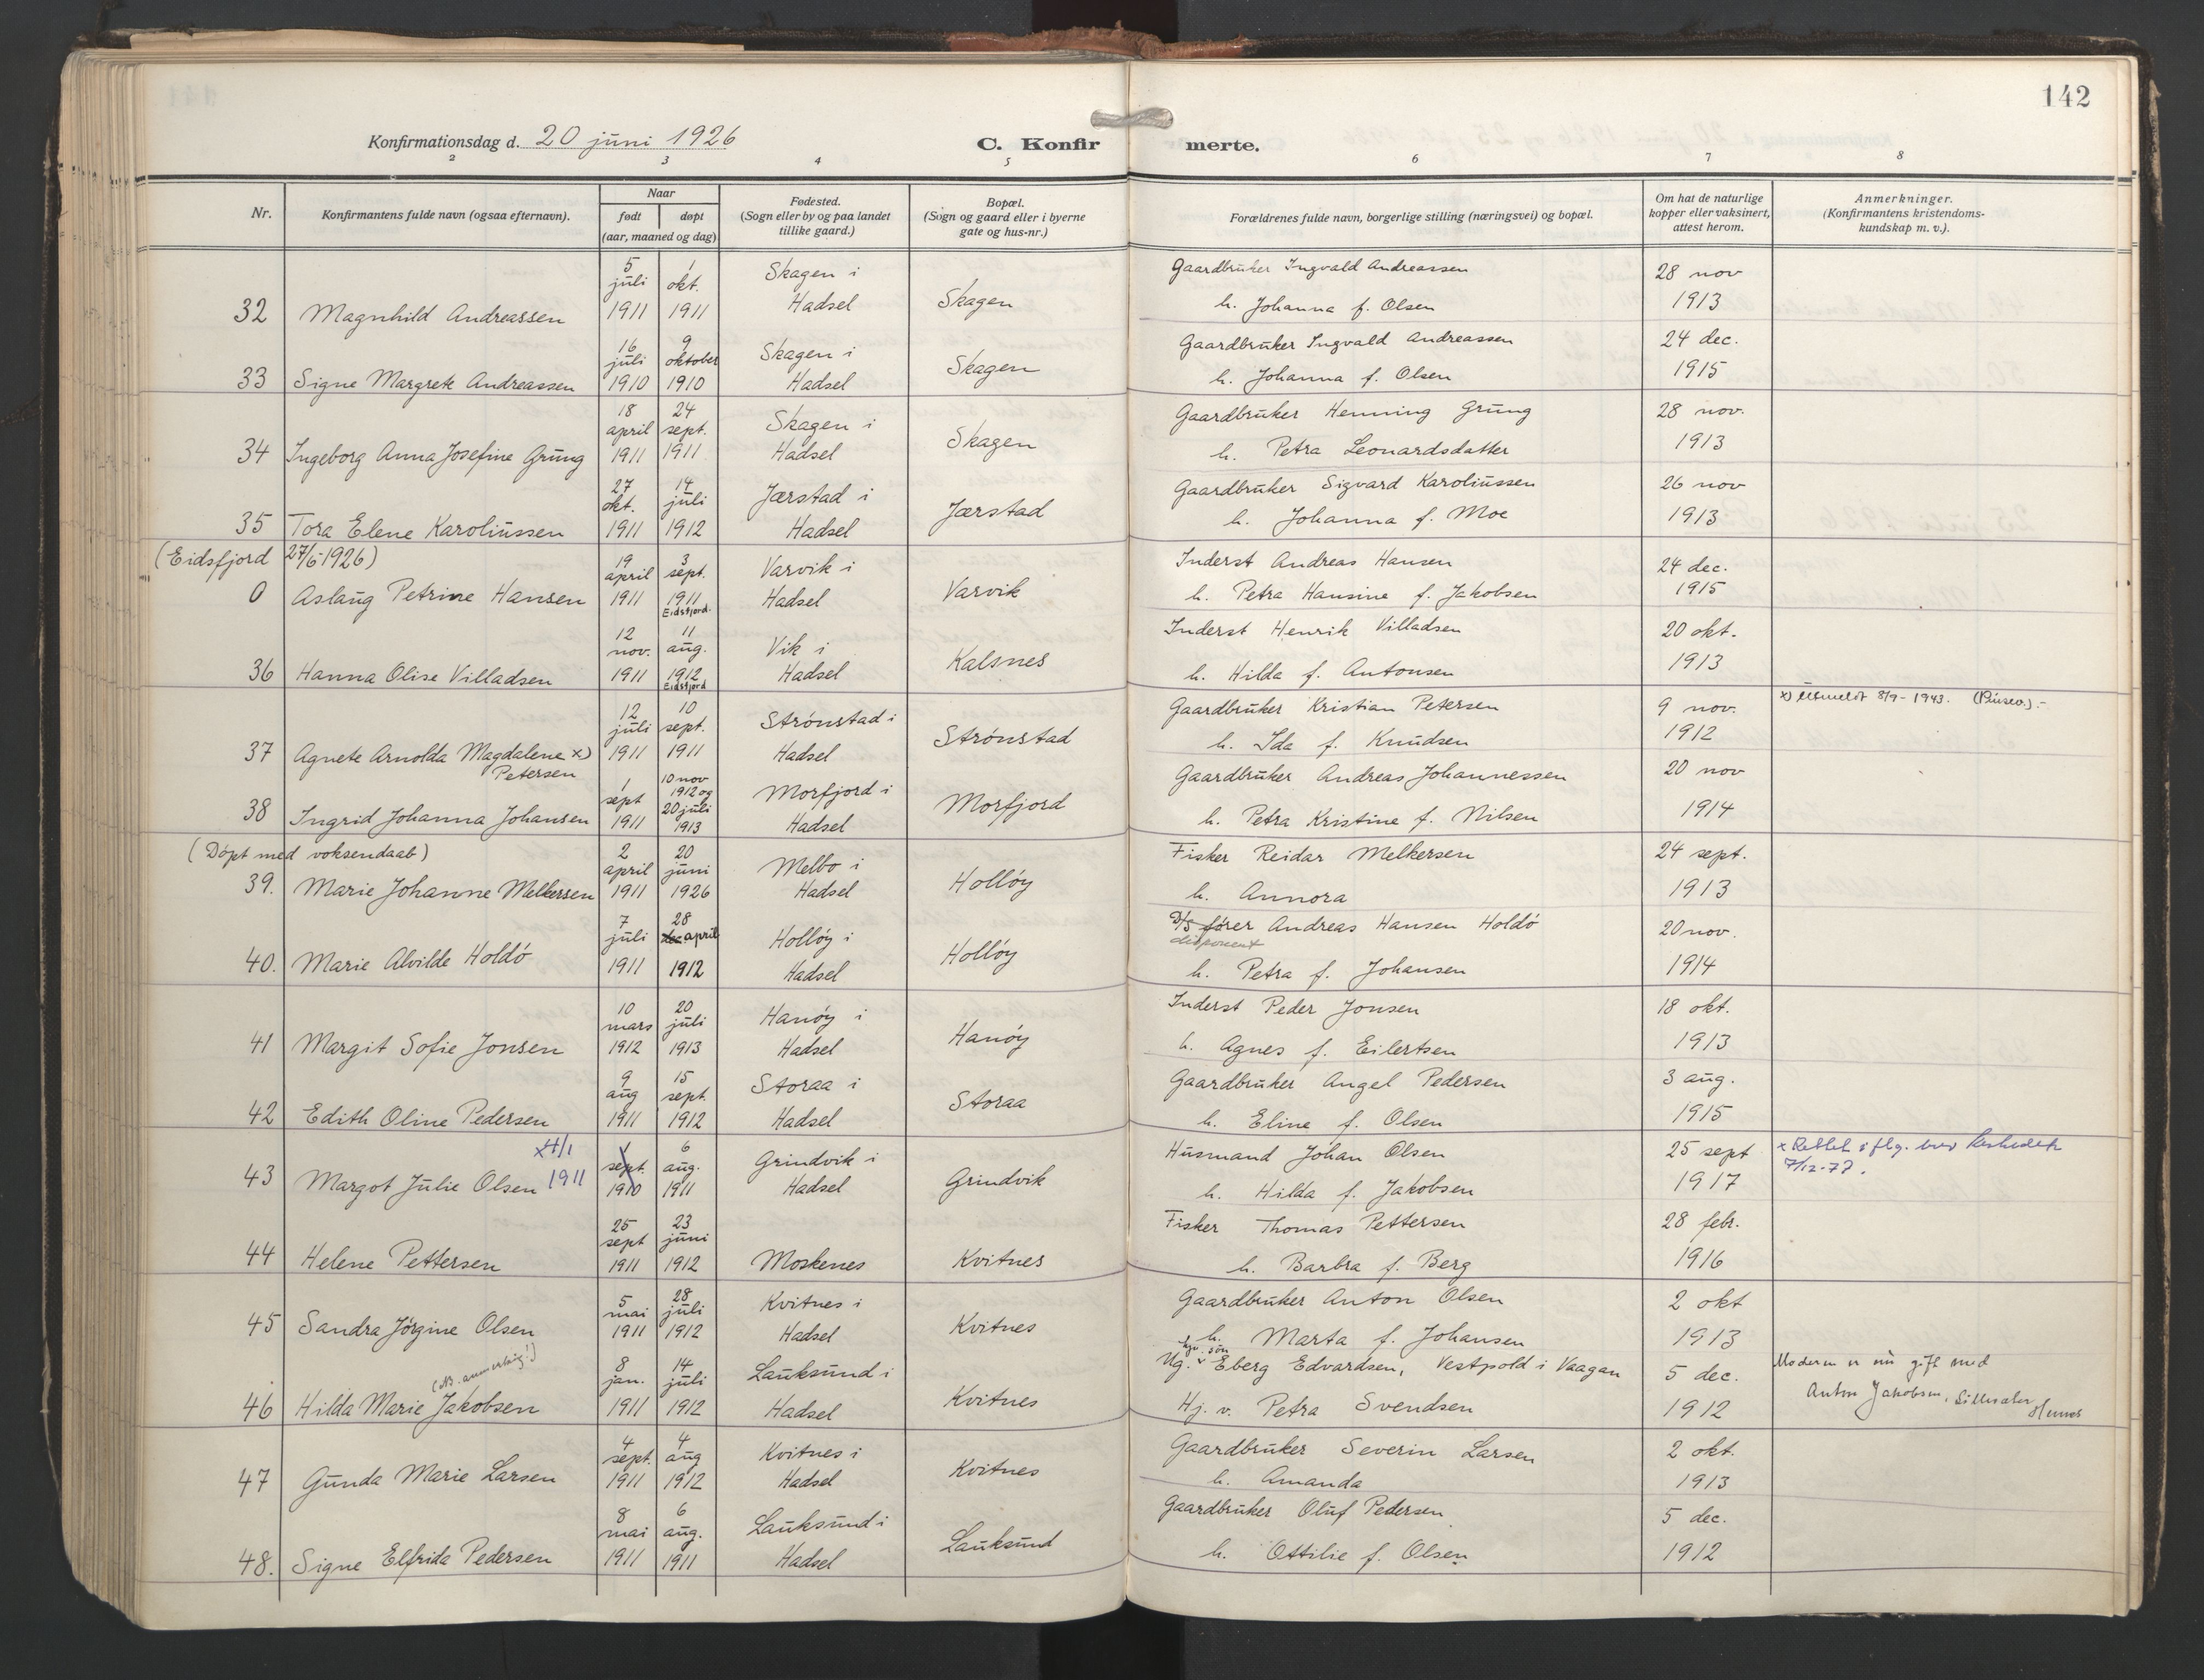 142
Konfirmationsdag d. 20 juni 1926
C. Konfirmerte.
2 3 4 5 6 7 8
Nr.
Konfirmantens fulde navn (ogsaa efternavn).
Naar
født
døpt
(aar, maaned og dag)
Fødested.
(Sogn eller by og paa landet
tillike gaard.)
Bopæl.
(Sogn og gaard eller i byerne
gate og hus-nr.)
Forældrenes fulde navn, borgerlige stilling (næringsvei) og bopæl.
Om hat de naturlige
kopper eller vaksinert,
attest herom.
Anmerkninger.
(Konfirmantens kristendoms-
kundskap m. v.).
32 Magnhild Andreassen
5 juli 1911
1 okt. 1911
Skagen i Hadsel
Skagen
Gaardbruker Ingvald Andreassen
h. Johanna f. Olsen
28 nov 1913
33 Signe Margrete Andreassen
16 juli 1910
9 oktober 1910
Skagen i Hadsel
Skagen
Gaardbruker Ingvald Andreassen
h. Johanna f. Olsen
24 dec. 1915
34 Ingeborg Anna Josefine Grung
18 april 1911
24 sept. 1911
Skagen i Hadsel
Skagen
Gaardbruker Henning Grung
h. Petra Leonardsdatter
28 nov. 1913
35 Tora Elene Karoliussen
27 okt. 1911
14 juli 1912
Jærstad i Hadsel
Jærstad
Gaardbruker Sigvard Karoliussen
h. Johanna f. Moe
26 nov 1913
(Eidsfjord 27/6 1926)
0 Aslaug Petrine Hansen
19 april 1911
3 sept. 1911 Eidsfjord.
Varvik i Hadsel
Varvik
Inderst Andreas Hansen
h. Petra Hansine f. Jakobsen
24 dec. 1915
36 Hanna Olise Villadsen
12 nov. 1911
11 aug. 1912 Eidsfjord
Vik i Hadsel
Kalsnes
Inderst Henrik Villadsen
h. Hilda f. Antonsen
20 okt. 1913
37 Agnete Arnolda Magdalene x)
Petersen
12 juli 1911
10 sept. 1911
Strønstad i Hadsel
Strønstad
Gaardbruker Kristian Petersen
h. Ida f. Knudsen
9 nov. 1912
x) Utmeldt 8/9 - 1943. (Pinsev.).-
38 Ingrid Johanna Johansen
1 sept 1911
10 nov 1912 og 20 juli 1913
Morfjord i Hadsel
Morfjord
Gaardbruker Andreas Johannessen
h. Petra Kristine f. Nilsen
20 nov 1914
(Døpt med voksendaab)
39. Marie Johanne Melkersen
2 april 1911
20 juni 1926
Melbo i Hadsel
Holløy
Fisker Reidar Melkersen
h. Annora
24 sept. 1913
40. Marie Alvilde Holdø
7 juli 1911
28 april 1912
Holløy i Hadsel
Holløy
D/S fører Andreas Hansen Holdø
disponent
h. Petra f. Johansen
20 nov. 1914
41 Margit Sofie Jonsen
10 mars 1912
20 juli 1913
Hanøy i Hadsel
Hanøy
Inderst Peder Jonsen
h. Agnes f. Eilertsen
18 okt. 1913
42 Edith Oline Pedersen
9 aug 1911
15 sept. 1912
Storaa i Hadsel
Storaa
Gaardbruker Angel Pedersen
h. Eline f. Olsen
3 aug. 1915
43 Margot Julie Olsen
1911
sept. 1910
6 aug. 1911
Grindvik i Hadsel
Grindvik
Husmand Johan Olsen
h. Hilda f. Jakobsen
25 sept 1917
x Rettet iflg. brev
7/12-77.
44 Helene Pettersen
25 sept 1911
23 juni 1912
Moskenes
Kvitnes
Fisker Thomas Pettersen
h. Barbra f. Berg
28 febr. 1916
45 Sandra Jørgine Olsen
5 mai 1911
28 juli 1912
Kvitnes i Hadsel
Kvitnes
Gaardbruker Anton Olsen
h. Marta f. Johansen
2 okt 1913
46 Hilda Marie Jakobsen
8 jan. 1911
14 juli 1912
Lauksund i Hadsel
Kvitnes
Ug. søn Eberg Edvardsen, Vestpold i Vaagan
Hj. v. Petra Svendsen
5 dec. 1912
Moderen er nu gift med
Anton Jakobsen,
47 Gunda Marie Larsen
4 sept. 1911
4 aug 1912
Kvitnes i Hadsel
Kvitnes
Gaardbruker Severin Larsen
h. Amanda
2 okt. 1913
48. Signe Elfrida Pedersen
8 mai 1911
6 aug. 1911
Lauksund i Hadsel
Lauksund
Gaardbruker Oluf Pedersen
h. Ottilie f. Olsen
5 dec. 1912